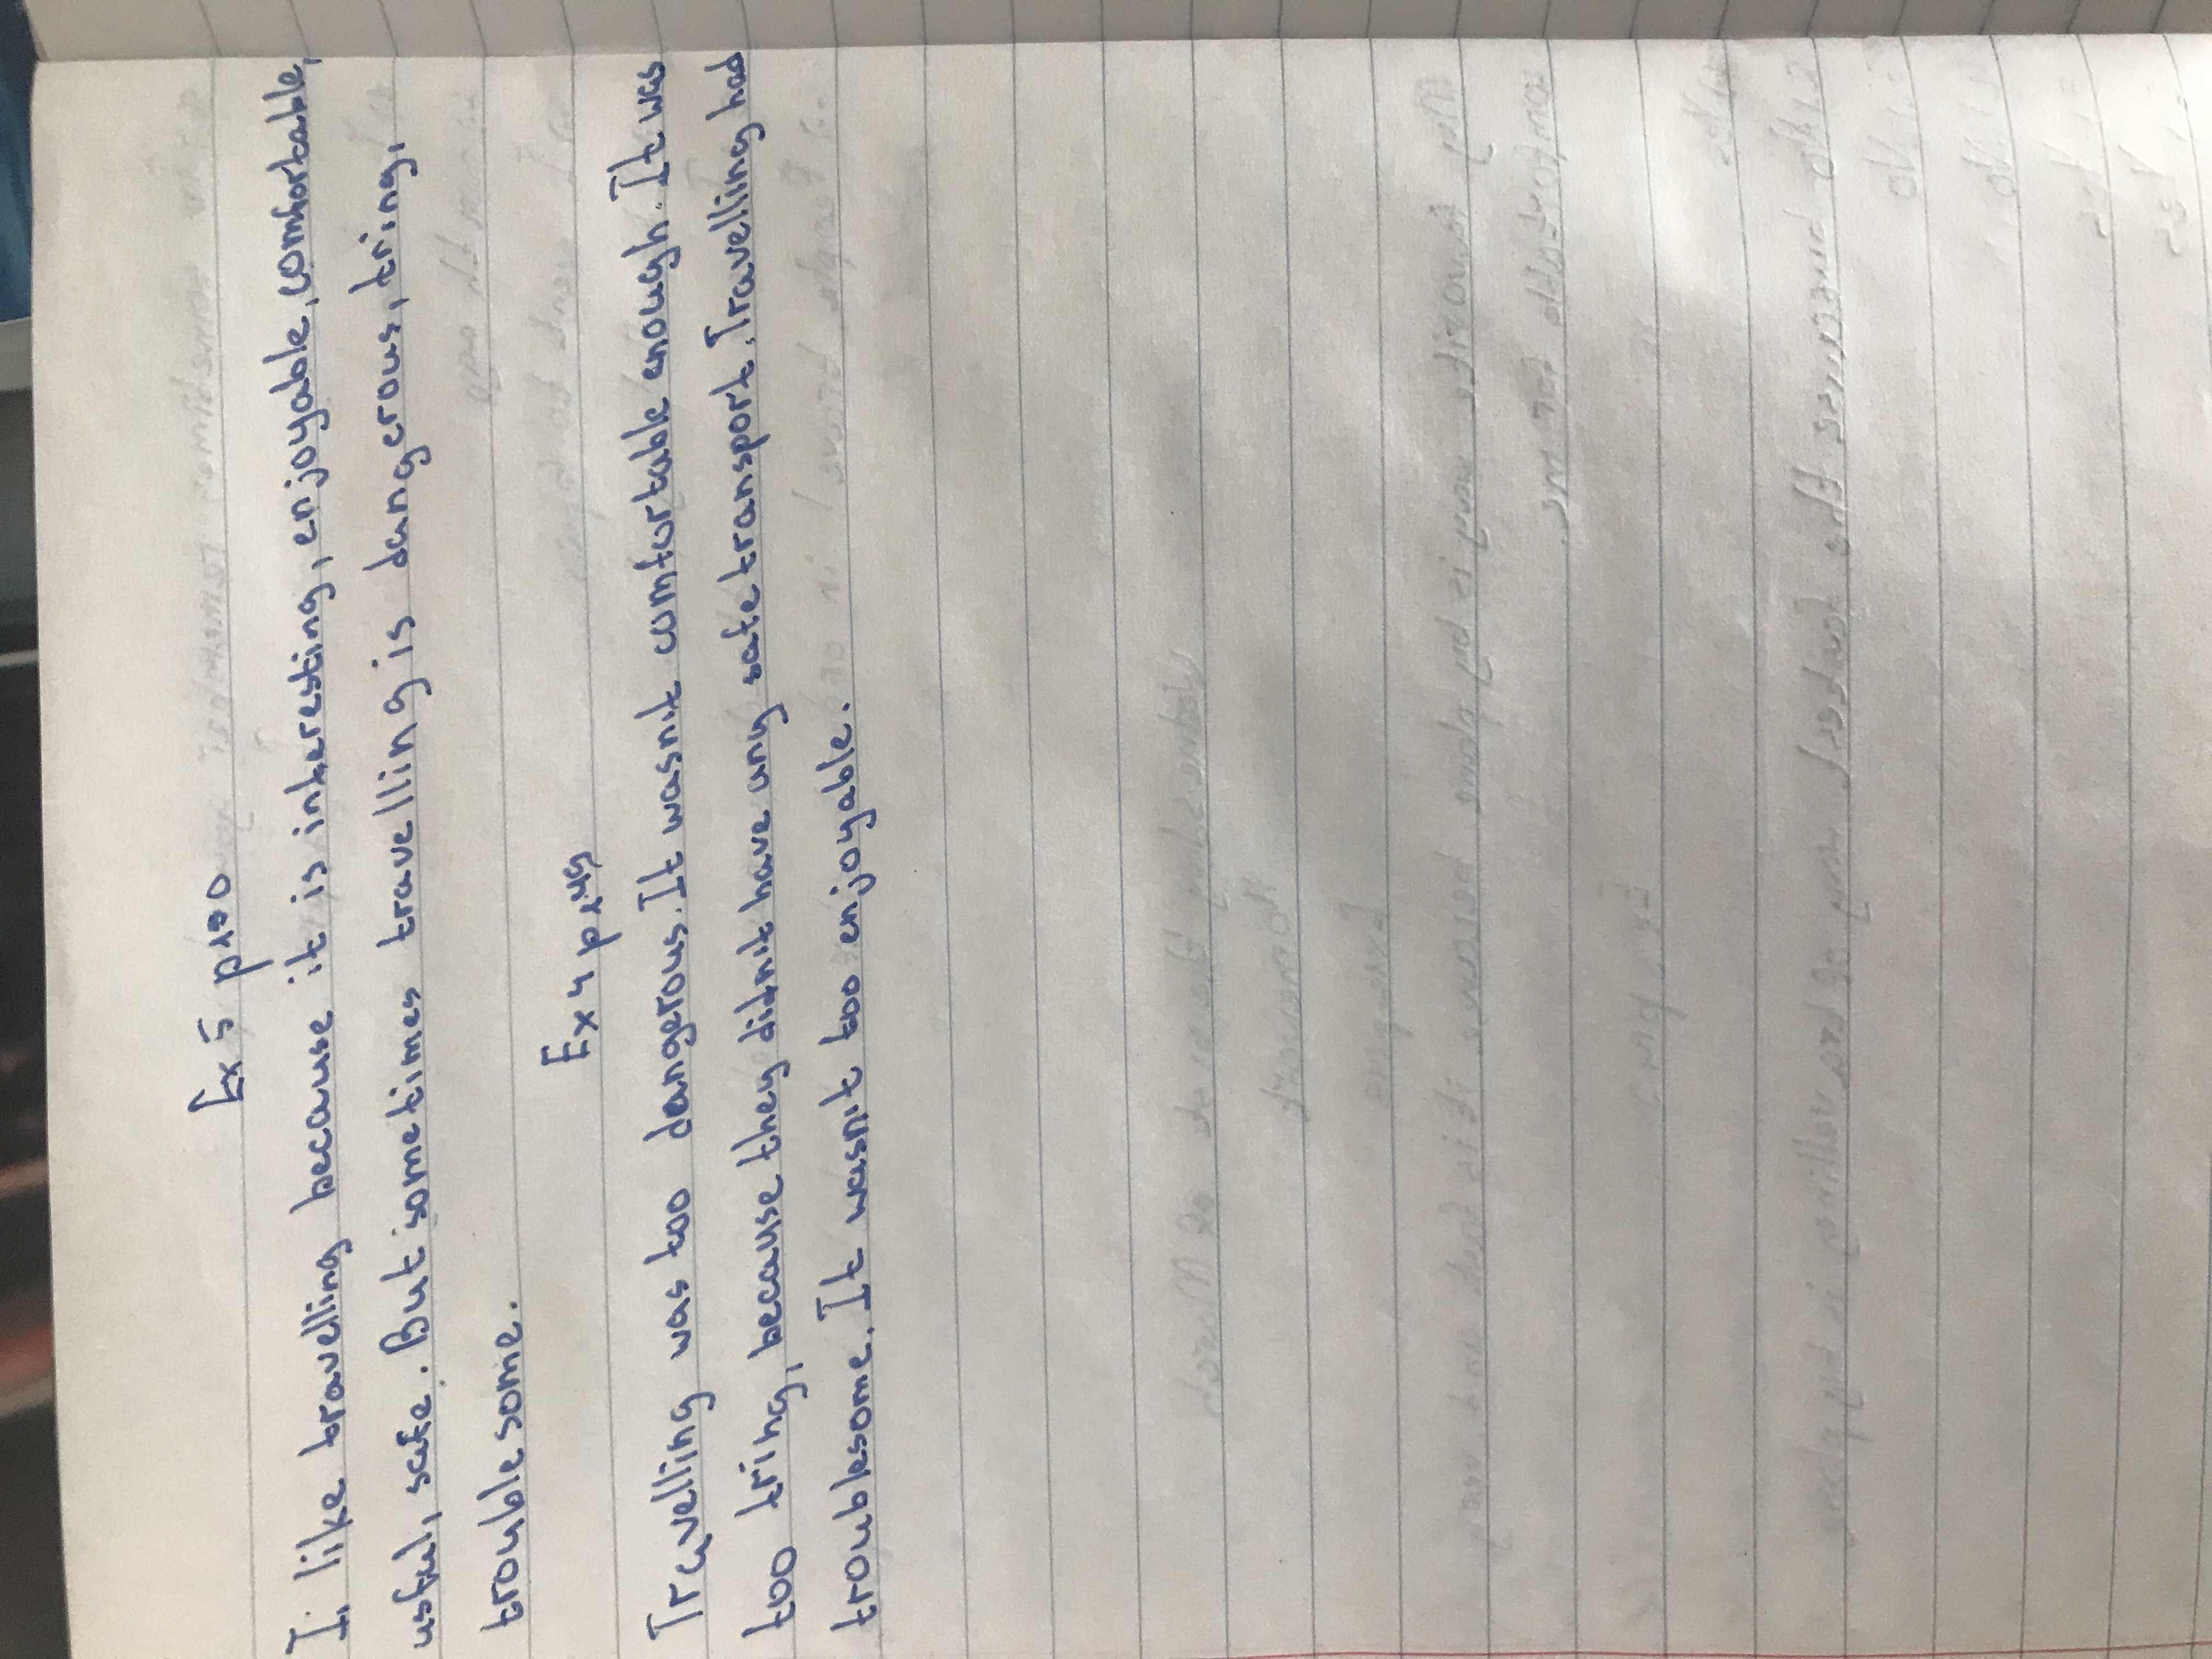 Ex 5 p190
I like travelling because it is interesting, enjoyable, comfortable,
usful, safe. But sometimes travelling is dangerous, tring,
troublesome.
Ex 4 p 149
Travelling was too dangerous. It wasn't comfortable enough. It was
too tring, because they didn't have any safe transport. Travelling had
troublesome. It wasn't too enjoyable.